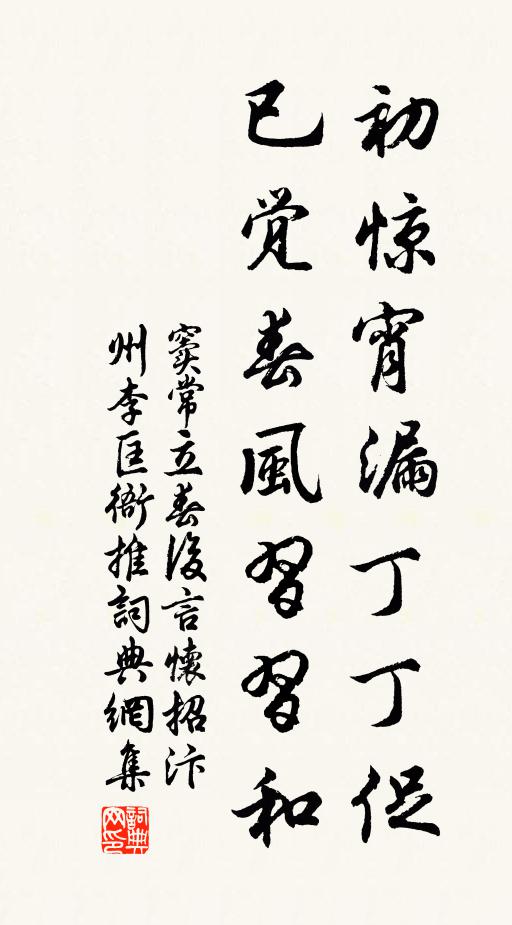 初惊宵漏丁丁促
已觉春風習習和
窦常立春後言懷招汴
州李匡衙推詞典網集
詞典网印